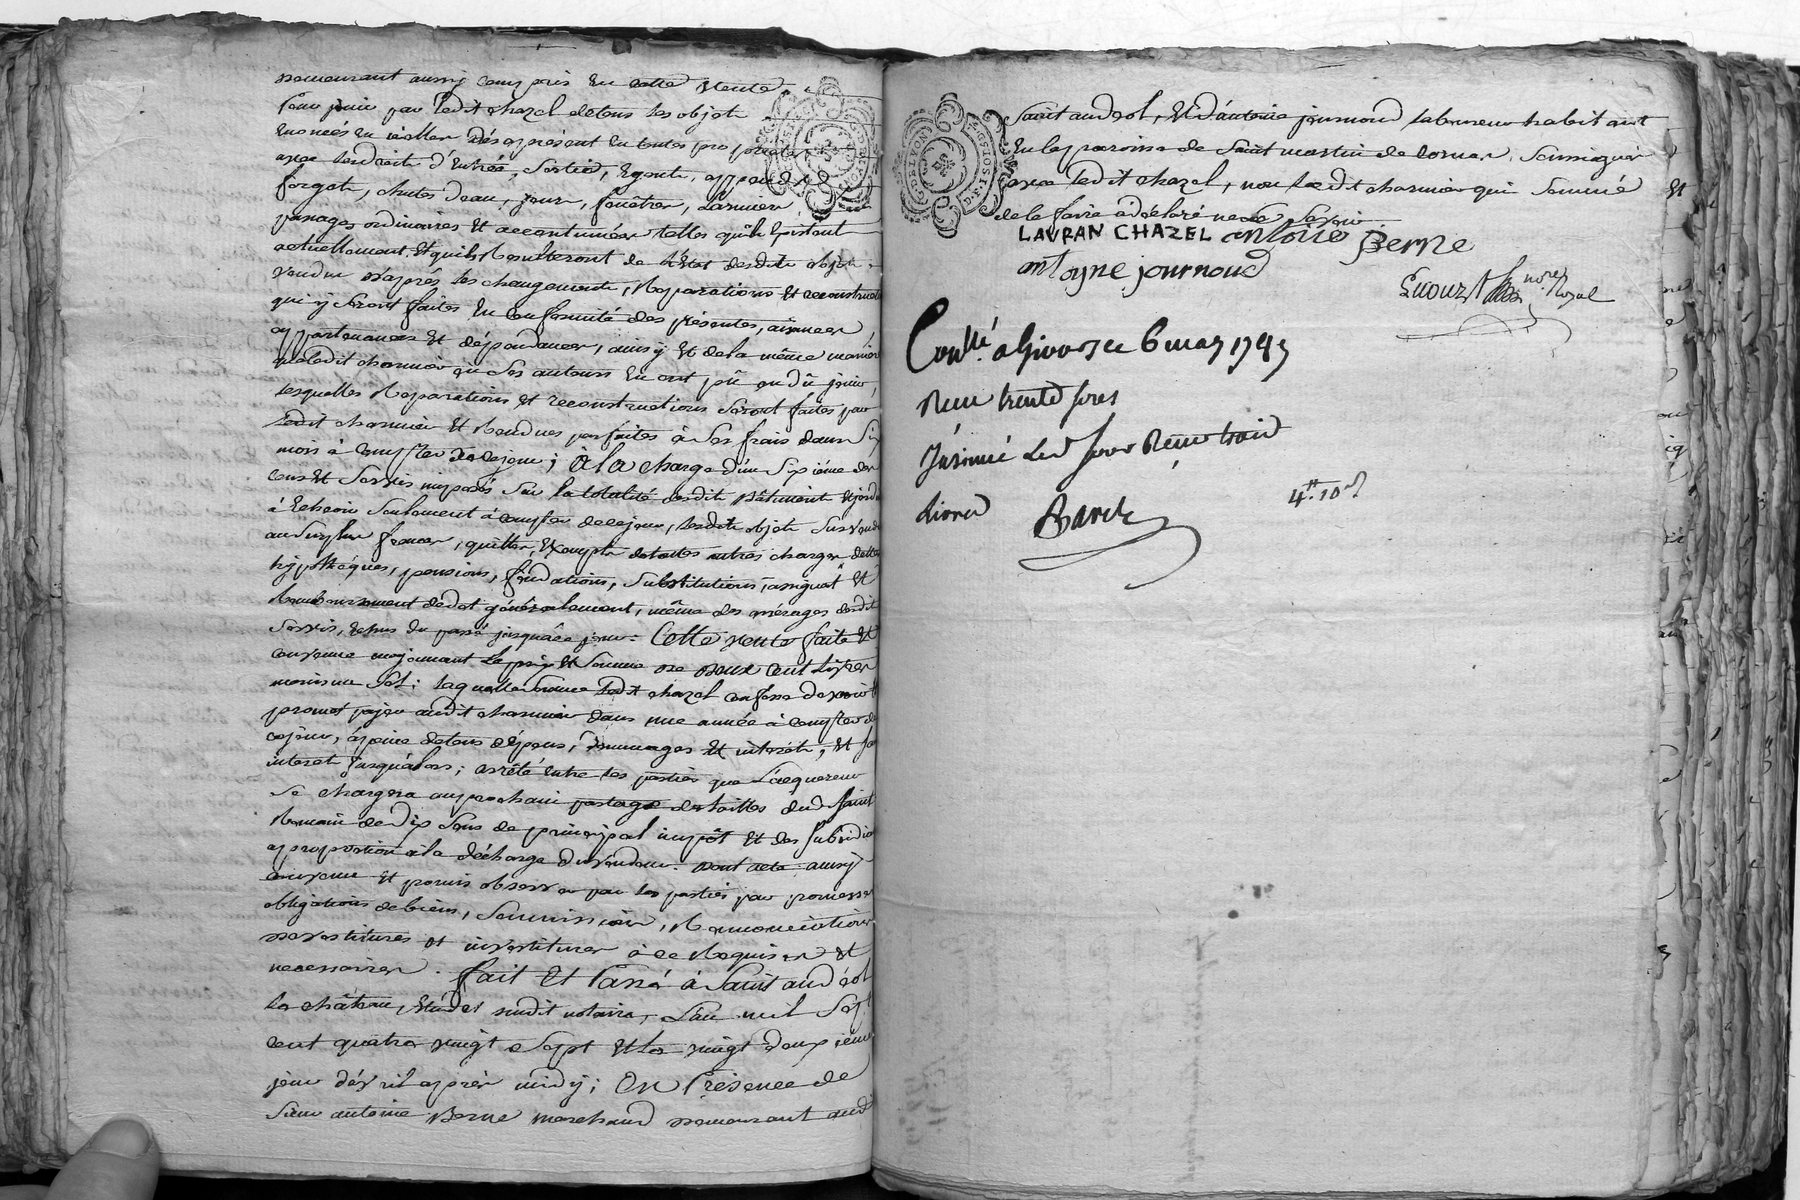 demeurant aussy compris en cette vente.
pour jouir par ledit chazel de tous les objets
énoncés en icelle dès à présent en toutes propriétés
avec les droits d'entrée, sortie, égouts, appendice
forgets, chutes d'eau, jours, fenêtres, larmiers
passages ordinaires et accoutumées telles qu'ils existent
actuellement et qu'ils résulteront de l'état desdits objets
vendus d'après les changements, réparations et reconstructions
qui y seront faites en conformité des présentes, aisances,
appartenances et dépendances, ainsy et de la même manière
que ledit charmier ou ses auteurs en ont pû ou dû jouir,
lesquelles réparations et reconstructions seront faites par
ledit charmier et rendues parfaites à ses frais dans six
mois à compter de ce jour; à la charge d'un sixième des
cens et servis imposés sur la totalité desdits bâtiment et jardin
à échoir seulement à compter de ce jour, lesdits objets sus vendus
au surplus francs, quittes, exempts de toutes autres charges dettes
hypothéques, pensions, fondations, substitutions, assignat et
remboursement de dot généralement, même des arrérages desdits
servis, échus du passé jusqu'à ce jour. Cette vente faite et
convenue moyennant le prix et somme de deux cent livres
moins un sol; laquelle somme ledit chazel confesse devoir et
promet payer audit charmier dans une année à compter de
ce jour, à peine de tous dépens, dommages et intérêts, et sans
interet jusqu'alors; arrêté entre les parties que l'acquereur
se chargera au prochain partage des tailles dud. Saint
Romain de dix sous de principal impôt et des subsidiaires
à proportion à la décharge du vendeur. dont acte aussy
convenu et promis observer par les parties par promesses
obligations de biens, soumissions, renonciations
devestitures et investitures à ce requises et
necessaires. fait et Passé à Saint andéol
le château, étude du susdit notaire, L'an mil sept
cent quatre vingt sept et le vingt deuxième
jour d'avril après midy; En Présence de
sieur antoine Berne marchand demeurant audit
Saint andeol, et d'antoine journoud laboureur habitant
en la paroisse de Saint martin de cornas, soussignés
avec ledit chazel, non ledit charmier qui sommé
de le faire a déclaré ne le savoir
LAVRAN CHAZEL antoine Berne
antoyne journoud
Enouz no.re Royal
Conllé a Givors ce 6 may 1787
Reçu trente sols
Insinué led. jour Reçu trois
livres Barde
4tt. 10s